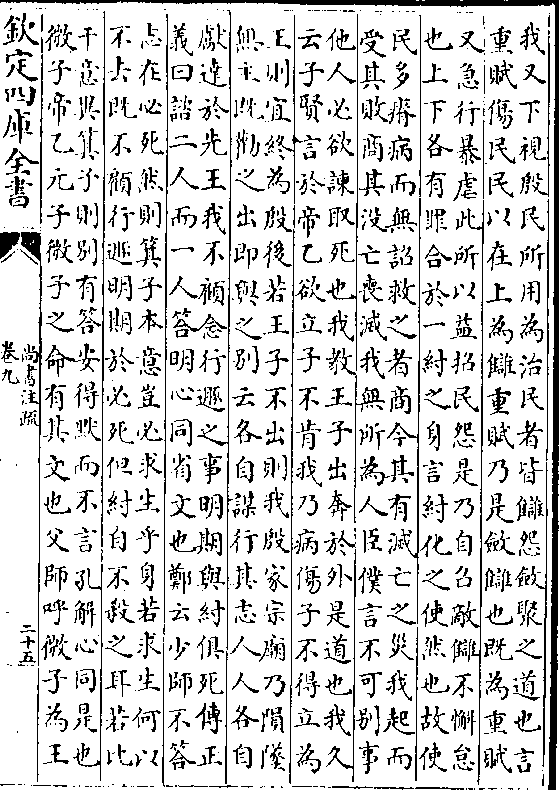 我又下視殷民所用為治民者皆讎怨斂聚之道也言
重賦傷民民以在上為讎重賦乃是斂讎也既為重賦
又急行暴虐此所以益招民怨是乃自召敵讎不懈怠
也上下各有罪合於一紂之身言紂化之使然也故使
民多瘠病而無詔救之者商今其有滅亡之災我起而
受其敗商其沒亡喪滅我無所為人臣僕言不可別事
他人必欲諫取死也我教王子出奔於外是道也我久
云子賢言於帝乙欲立子不肯我乃病傷子不得立為
王則宜終為殷後若王子不出則我殷家宗廟乃隕墜
無主既勸之出即與之別云各自謀行其志人人各自
獻達於先王我不顧念行遯之事明期與紂俱死傳正
義曰諮二人而一人答明心同省文也鄭云少師不答
志在必死然則箕子本意豈必求生乎身若求生何以
不去既不顧行遯明期於必死但紂自不殺之耳若比
干意異箕子則別有答安得默而不言孔解心同是也
微子帝乙元子微子之命有其文也父師呼微子為王
欽定四庫全書
尚書注疏
卷九
二十五